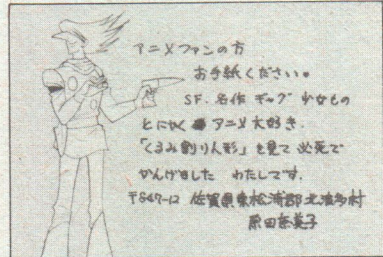 アニメファンの方
お手紙ください。
SF. 名作 ギャグ 少女もの
とにかく アニメ大好き.
「くるみ割り人形」を見て 必死で
かんげきした わたしです.
〒847-12 佐賀県東松浦郡北波多村
原田奈美子